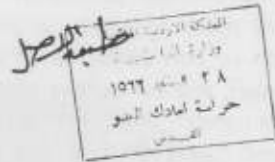 طبق الاصل
المملكة الاردنية
وزارة
٢٨ ١٩٦٦
حراسة املاك العدو
القدس